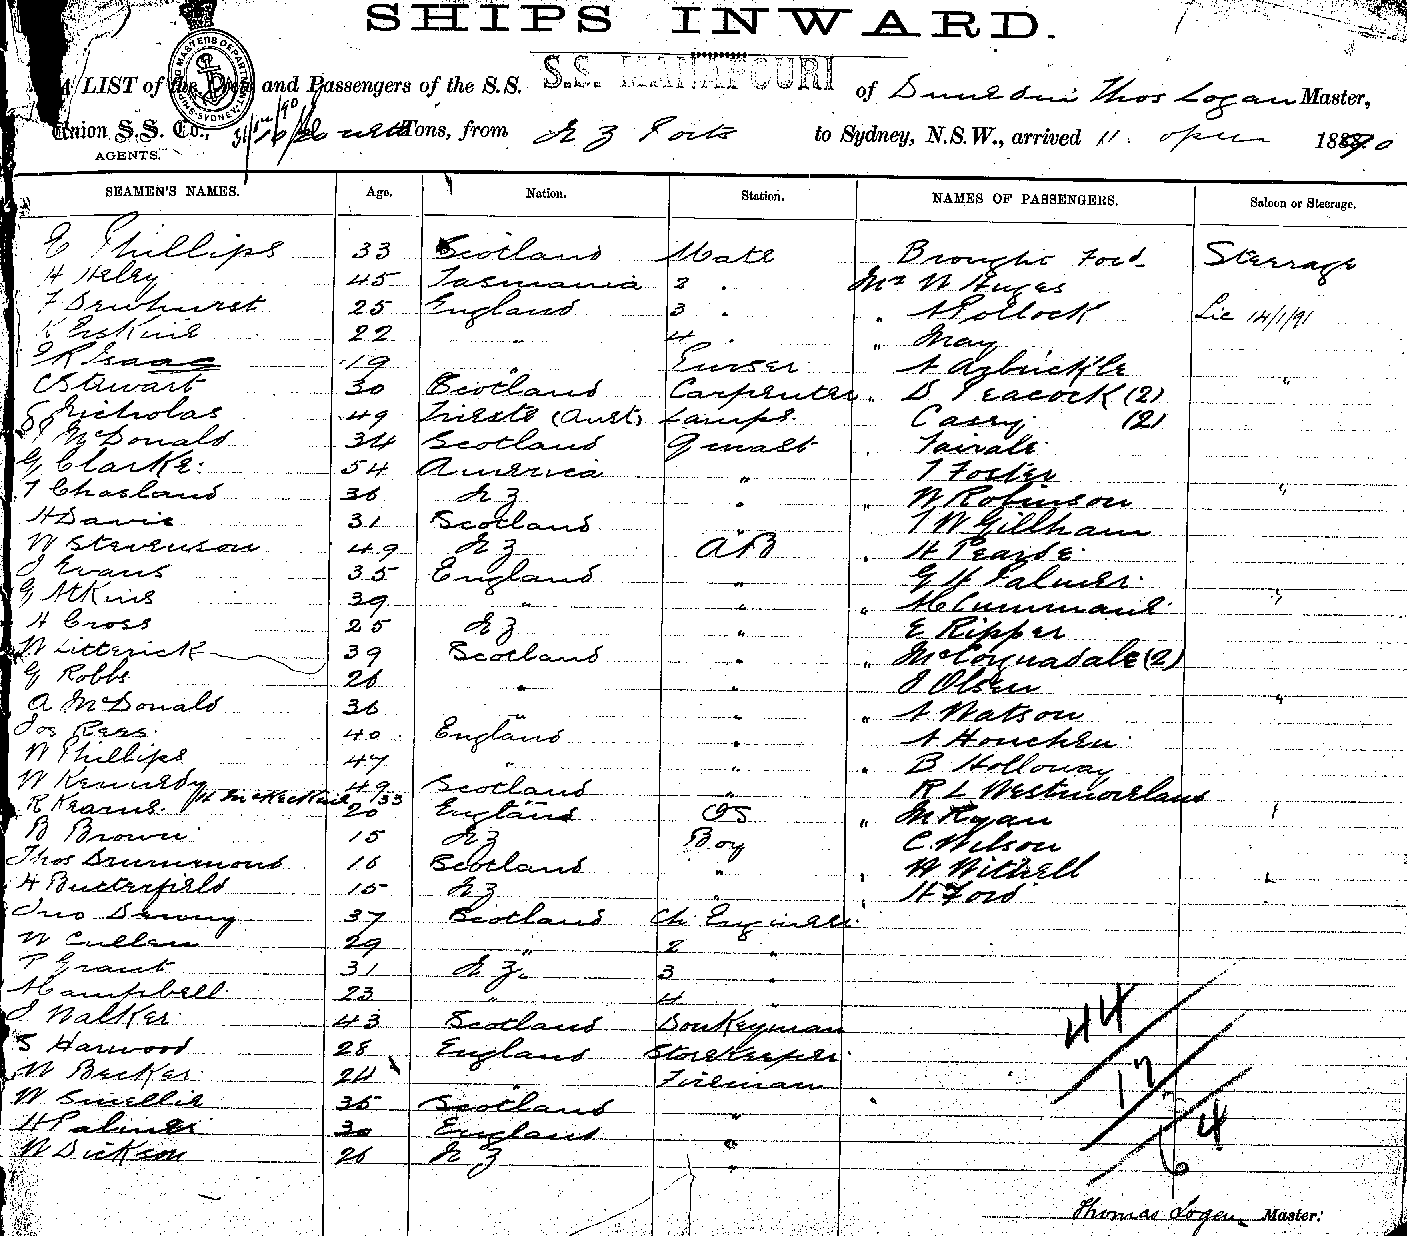 SHIPS INWARD.
A LIST of the Crew and Passengers of the S.S. S.S. MANAPOURI of Dunedin Thos Logan Master,
Union S.S. Co., Tons, from N Z Ports to Sydney, N.S.W., arrived 11. 1890
AGENTS.
SEAMEN'S NAMES. Age. Nation. Station. NAMES OF PASSENGERS. Saloon or Steerage.
E Phillips 33 Scotland Mate Brought Ford Steerage
H Heley 45 Tasmania 2 " Mr W Huges
F Dewhurst 25 England 3 " " A Pollock Lic 14/1/91
K Erskine 22 " 4 " " May
R Isaac 19 " Purser A Arbuckle
C Stewart 30 Scotland Carpenter " D Peacock (2) "
Nicholas 49 Trieste (Aust) Lamps Casey (2)
McDonald 34 Scotland " Fairale
G Clarke 54 America " T Foster
T Chasland 36 N Z " " W Robinson "
H Davis 31 Scotland " T W Gillham
W Stevenson 49 N Z AB " H Pearse
J Evans 35 England " G H Palmer
G Atkins 39 " " " McCummans "
H Cross 25 N Z " E Ripper
W Litterick 39 Scotland " " McCorquadale (2)
G Robbs 26 " " J Olsen
A McDonald 36 " " " A Watson "
Jos Rees 40 England " A Houchen
W Phillips 47 " " " B Holloway
W Kennedy 49 Scotland " R L Westmoreland
R Kearns 20 England OS " M Ryan "
B Brown 15 N Z Boy C Wilson
Thos Drummond 16 Scotland " " W Withell "
H Butterfield 15 N Z " " H Ford
Jno Denny 37 Scotland Ch Engineer
W Cullen 29 " 2 "
P Grant 31 N Z. 3 "
M Campbell 23 " 4 "
J Walker 43 Scotland Donkeyman
S Harwood 28 England Storekeeper
W Becker 24 " Fireman
W Smellie 35 Scotland "
H Palmer 30 England "
W Dickson 26 N Z "
44
17
64
Thomas Logan Master.